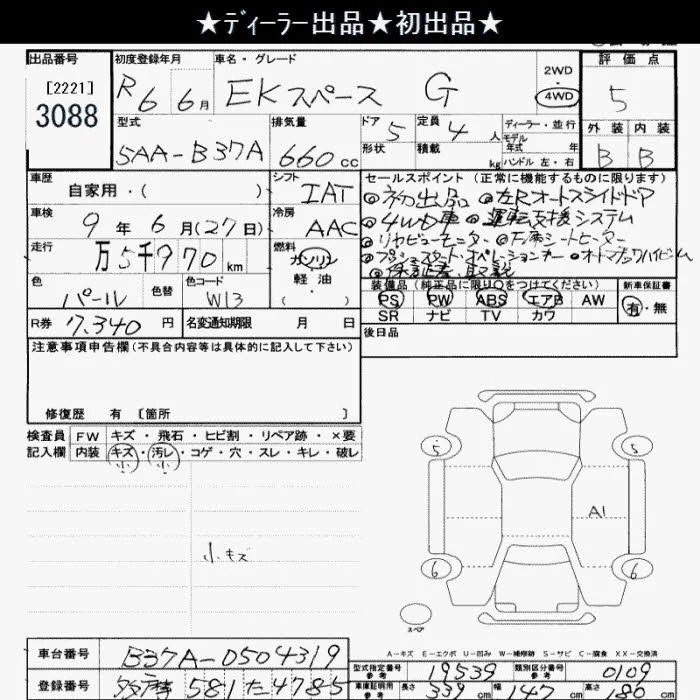 ★ディーラー出品★初出品★
出品番号
[2221]
3088
初度登録年月
R6 6月
車名・グレード
EKスペース G
2WD
4WD
評価点
5
外装 内装
B B
型式
5AA-B37A
排気量
660cc
ドア
5
形状
定員
4人
積載
kg
ディーラー・並行
モデル
年式 年
ハンドル 左・右
車歴
自家用・( )
シフト
IAT
車検
9年6月(27日)
冷房
AAC
走行
万5千970km
燃料
ガソリン
軽油
( )
色
パール
色替
色コード
W13
R券
7,340円
名変通知期限 月 日
セールスポイント(正常に機能するものに限ります)
◎初出品 ◎左Rオートスライドドア
◎4WD車 ◎運転支援システム
◎リヤビューモニター ◎F席シートヒーター
◎プッシュスタート・オペレーションキー ◎オートマチックハイビーム
◎保証書、取説
装備品(純正品に限り○をつけてください)
PS PW ABS エアB AW
SR ナビ TV カワ
新車保証書
有・無
後日品
注意事項申告欄(不具合内容等は具体的に記入して下さい)
修復歴 有 〔箇所 〕
検査員
記入欄
FW キズ・飛石・ヒビ割・リペア跡・×要
内装 キズ・汚レ・コゲ・穴・スレ・キレ・破レ
小 小
小キズ
5 5
A1
6 6
スペア
A-キズ E-エクボ U-凹み W-補修跡 S-サビ C-腐食 XX-交換済
車台番号
B37A-0504319
登録番号
581 た 478-5
型式指定番号
参考
19539
類別区分番号
参考
0109
車庫証明用
参考
長さ 339cm
幅 147cm
高さ
cm